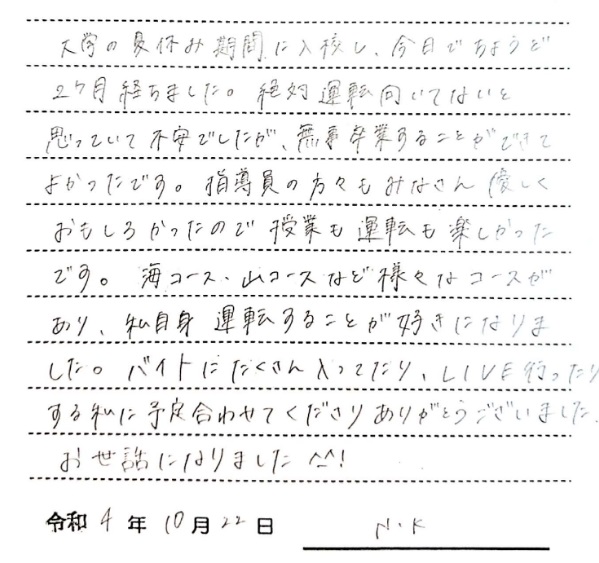 大学の夏休み期間に入校し、今日でちょうど
2ヶ月経ちました。絶対運転向いてないと
思っていて不安でしたが、無事卒業することができて
よかったです。指導員の方々もみなさん優しく
おもしろかったので授業も運転も楽しかった
です。海コース、山コースなど様々なコースが
あり、私自身運転することが好きになりま
した。バイトにたくさん入ってたり、LIVE行ったり
する私に予定合わせてくださりありがとうございました。
お世話になりました^^!
令和4年10月22日 N.K